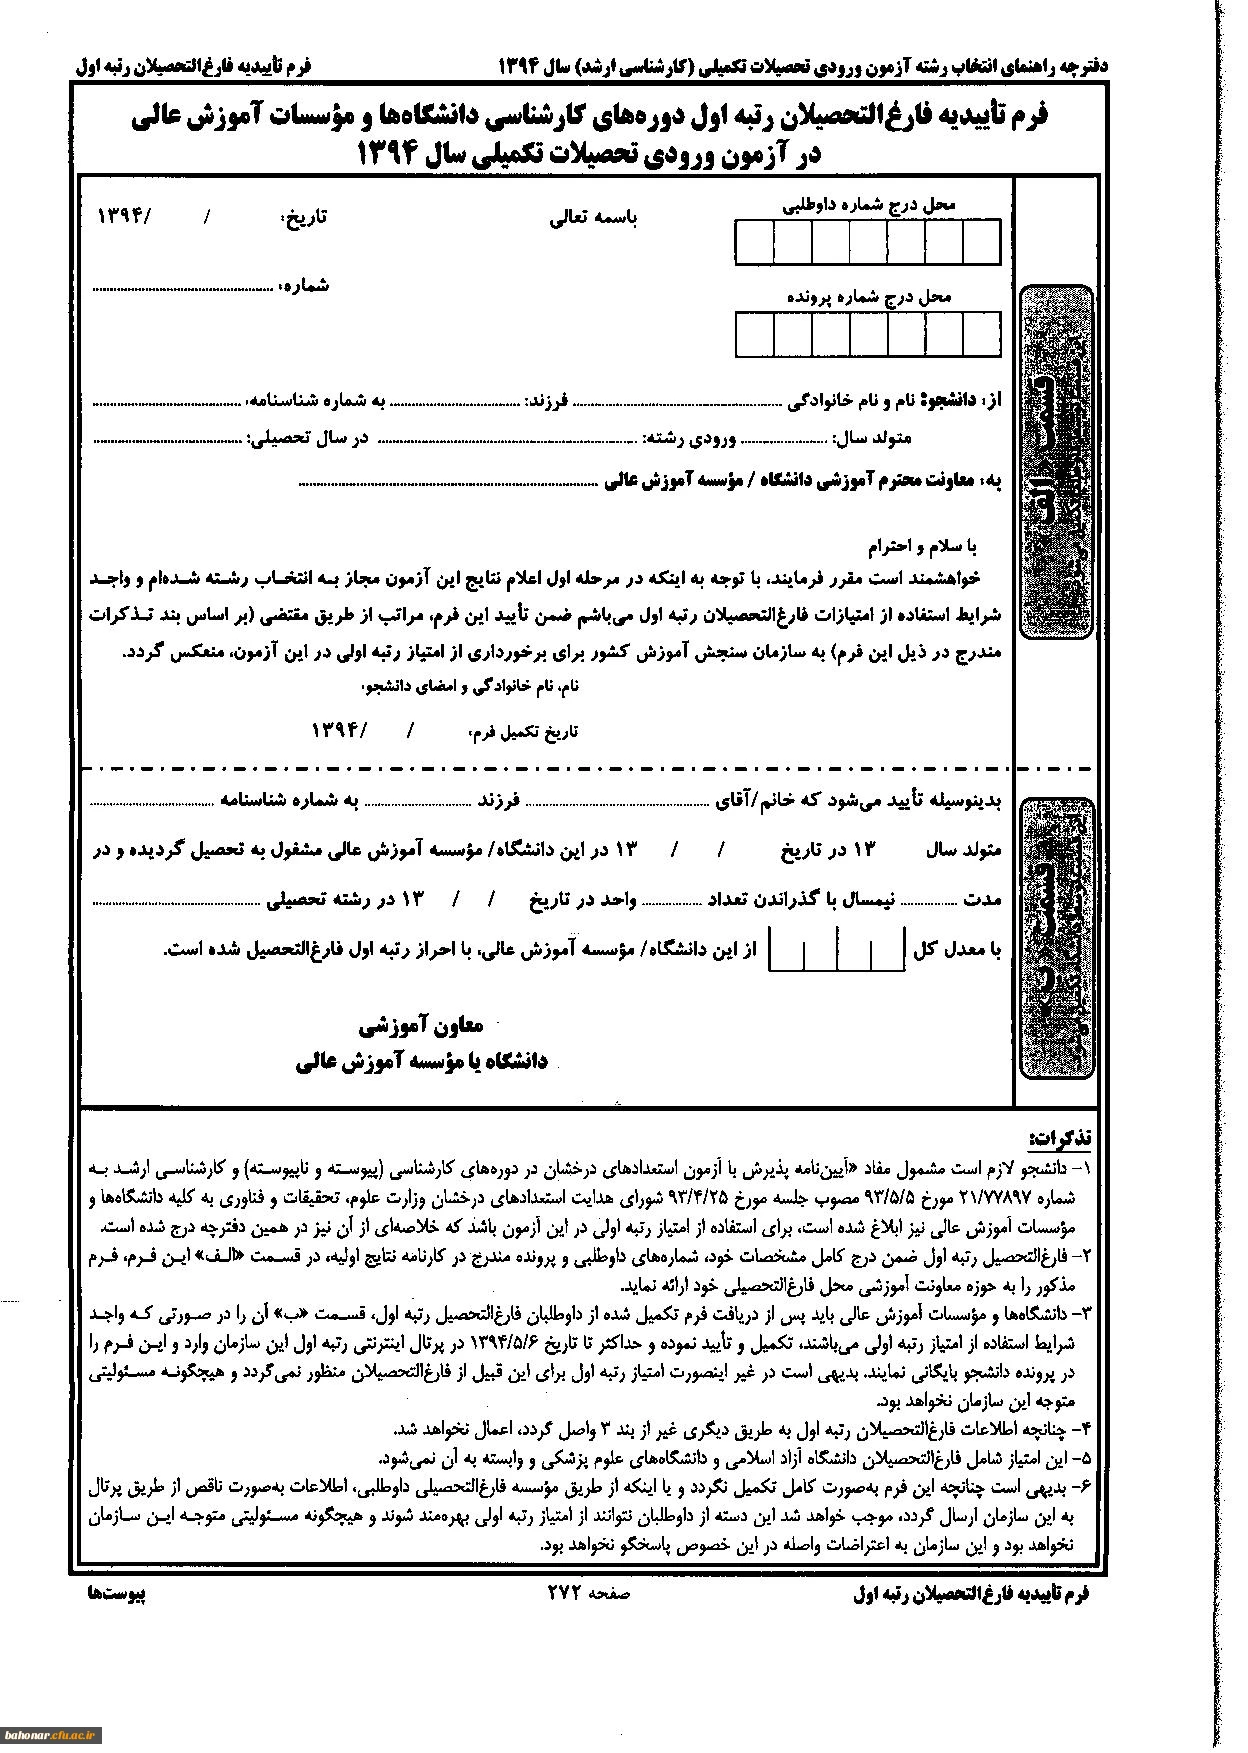 دفترچه راهنمای انتخاب رشته آزمون ورودی تحصیلات تکمیلی (کارشناسی ارشد) سال ۱۳۹۴ فرم تأییدیه فارغ‌التحصیلان رتبه اول
فرم تأییدیه فارغ‌التحصیلان رتبه اول دوره‌های کارشناسی دانشگاه‌ها و مؤسسات آموزش عالی
در آزمون ورودی تحصیلات تکمیلی سال ۱۳۹۴
محل درج شماره داوطلبی
باسمه تعالی
تاریخ: / /۱۳۹۴
شماره: ................
محل درج شماره پرونده
قسمت «الف»
از: دانشجو: نام و نام خانوادگی ................ فرزند: ................ به شماره شناسنامه: ................
متولد سال: ................ ورودی رشته: ................ در سال تحصیلی: ................
به: معاونت محترم آموزشی دانشگاه / مؤسسه آموزش عالی ................
با سلام و احترام
خواهشمند است مقرر فرمایند، با توجه به اینکه در مرحله اول اعلام نتایج این آزمون مجاز به انتخاب رشته شده‌ام و واجد
شرایط استفاده از امتیازات فارغ‌التحصیلان رتبه اول می‌باشم ضمن تأیید این فرم، مراتب از طریق مقتضی (بر اساس بند تذکرات
مندرج در ذیل این فرم) به سازمان سنجش آموزش کشور برای برخورداری از امتیاز رتبه اولی در این آزمون، منعکس گردد.
نام، نام خانوادگی و امضای دانشجو:
تاریخ تکمیل فرم: / /۱۳۹۴
قسمت «ب»
بدینوسیله تأیید می‌شود که خانم/آقای ................ فرزند ................ به شماره شناسنامه ................
متولد سال ۱۳ در تاریخ / / ۱۳ در این دانشگاه/ مؤسسه آموزش عالی مشغول به تحصیل گردیده و در
مدت ................ نیمسال با گذراندن تعداد ................ واحد در تاریخ / / ۱۳ در رشته تحصیلی ................
با معدل کل از این دانشگاه/ مؤسسه آموزش عالی، با احراز رتبه اول فارغ‌التحصیل شده است.
معاون آموزشی
دانشگاه یا مؤسسه آموزش عالی
تذکرات:
۱- دانشجو لازم است مشمول مفاد «آیین‌نامه پذیرش با آزمون استعدادهای درخشان در دوره‌های کارشناسی (پیوسته و ناپیوسته) و کارشناسی ارشد به
شماره ۲۱/۷۷۸۹۷ مورخ ۹۳/۵/۵ مصوب جلسه مورخ ۹۳/۴/۲۵ شورای هدایت استعدادهای درخشان وزارت علوم، تحقیقات و فناوری به کلیه دانشگاه‌ها و
مؤسسات آموزش عالی نیز ابلاغ شده است، برای استفاده از امتیاز رتبه اولی در این آزمون باشد که خلاصه‌ای از آن نیز در همین دفترچه درج شده است.
۲- فارغ‌التحصیل رتبه اول ضمن درج کامل مشخصات خود، شماره‌های داوطلبی و پرونده مندرج در کارنامه نتایج اولیه، در قسمت «الف» این فرم، فرم
مذکور را به حوزه معاونت آموزشی محل فارغ‌التحصیلی خود ارائه نماید.
۳- دانشگاه‌ها و مؤسسات آموزش عالی باید پس از دریافت فرم تکمیل شده از داوطلبان فارغ‌التحصیل رتبه اول، قسمت «ب» آن را در صورتی که واجد
شرایط استفاده از امتیاز رتبه اولی می‌باشند، تکمیل و تأیید نموده و حداکثر تا تاریخ ۱۳۹۴/۵/۶ در پرتال اینترنتی رتبه اول این سازمان وارد و این فرم را
در پرونده دانشجو بایگانی نمایند. بدیهی است در غیر اینصورت امتیاز رتبه اول برای این قبیل از فارغ‌التحصیلان منظور نمی‌گردد و هیچگونه مسئولیتی
متوجه این سازمان نخواهد بود.
۴- چنانچه اطلاعات فارغ‌التحصیلان رتبه اول به طریق دیگری غیر از بند ۳ واصل گردد، اعمال نخواهد شد.
۵- این امتیاز شامل فارغ‌التحصیلان دانشگاه آزاد اسلامی و دانشگاه‌های علوم پزشکی و وابسته به آن نمی‌شود.
۶- بدیهی است چنانچه این فرم به‌صورت کامل تکمیل نگردد و یا اینکه از طریق مؤسسه فارغ‌التحصیلی داوطلبی، اطلاعات به‌صورت ناقص از طریق پرتال
به این سازمان ارسال گردد، موجب خواهد شد این دسته از داوطلبان نتوانند از امتیاز رتبه اولی بهره‌مند شوند و هیچگونه مسئولیتی متوجه این سازمان
نخواهد بود و این سازمان به اعتراضات واصله در این خصوص پاسخگو نخواهد بود.
فرم تأییدیه فارغ‌التحصیلان رتبه اول صفحه ۲۷۲ پیوست‌ها
bahonar.cfu.ac.ir